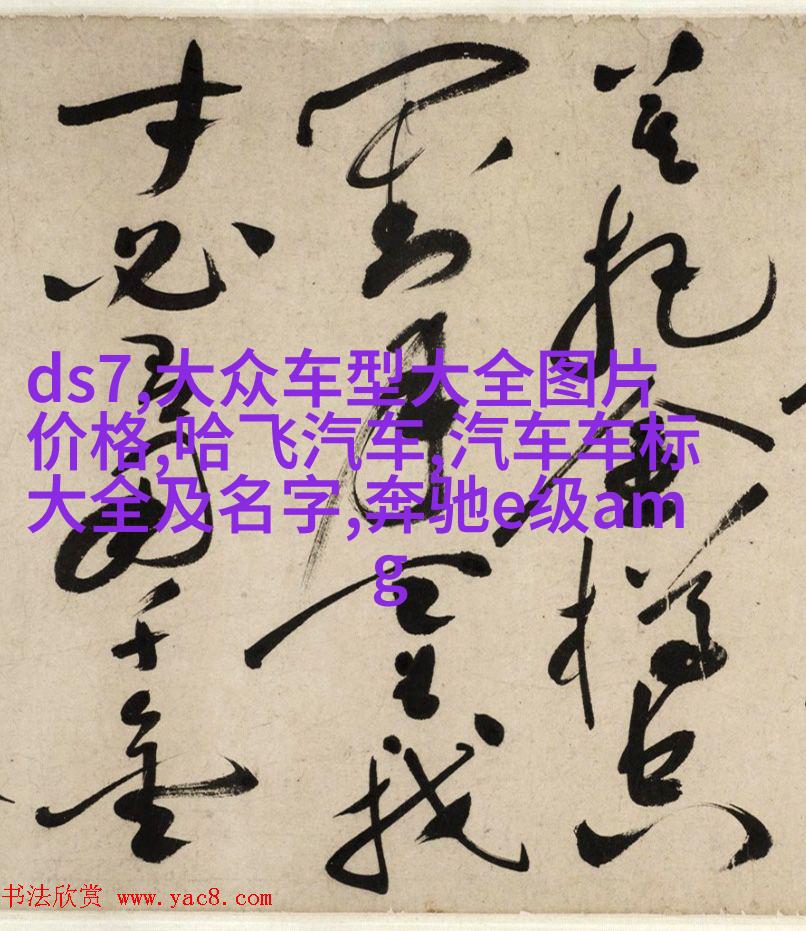 ds7,大众车型大全图片
价格,哈飞汽车,汽车车标
大全及名字,奔驰e级am
g
把金樽空
對月 我
才必 千金
书法欣赏 www.yac8.com